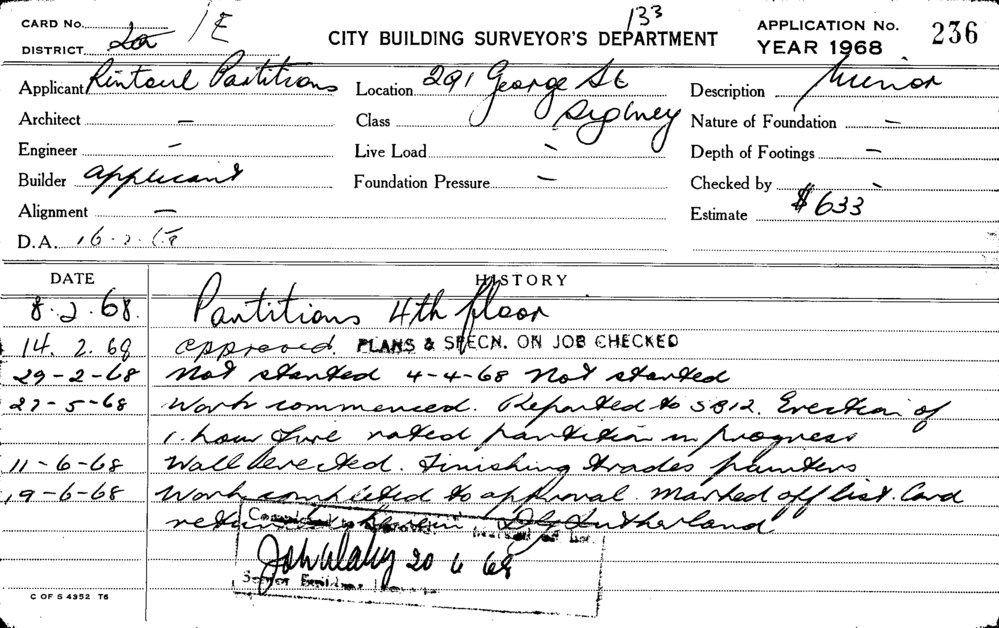 133
CARD No. /E
DISTRICT 2a
CITY BUILDING SURVEYOR'S DEPARTMENT
APPLICATION No. 236
YEAR 1968
Applicant Rintoul Partitions
Location 291 George St
Sydney
Description Minor
Architect –
Class
Nature of Foundation –
Engineer –
Live Load –
Depth of Footings –
Builder applicant
Foundation Pressure –
Checked by –
Alignment –
Estimate $633
D.A. 16.2.68
DATE HISTORY
8.2.68. Partitions 4th floor
14.2.68 approved. PLANS & SPECN. ON JOB CHECKED
29-2-68 Not started 4-4-68 Not started
27-5-68 Work commenced. Reported to SB12. Erection of
1. hour fire rated partition in progress
11-6-68 Wall erected. Finishing trades painters
19-6-68 Work completed to approval. Marked off list. Card
herein D G Sutherland
20 6 68
Senior Building
C OF S 4352 T6